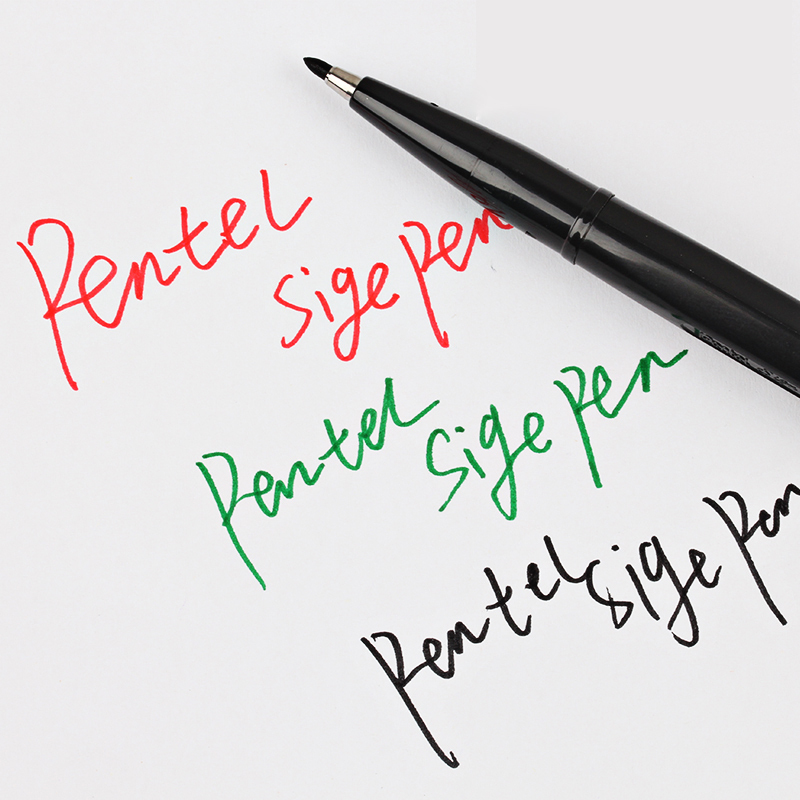 Pentel
Sige Pen
Pentel
Sige Pen
Pentel
Sige Pen